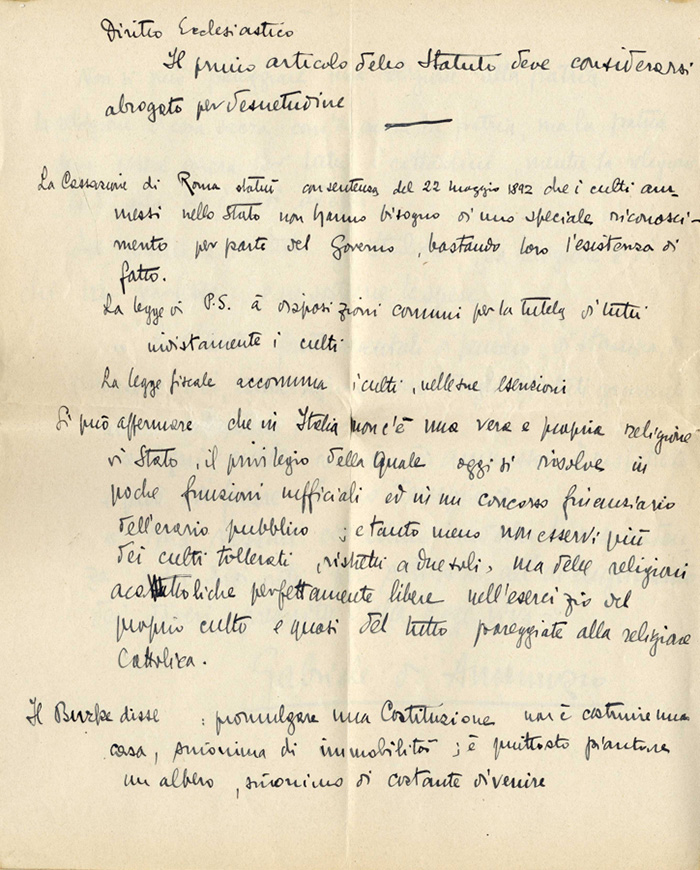 Diritto Ecclesiastico
Il primo articolo dello Statuto deve considerarsi
abrogato per desuetudine
La Cassazione di Roma statuì con sentenza del 22 maggio 1892 che i culti am-
messi nello Stato non hanno bisogno di uno speciale riconosci-
mento per parte del Governo, bastando loro l'esistenza di
fatto.
La legge di P.S. à disposizioni comuni per la tutela di tutti
indistamente i culti
La legge fiscale accomuna i culti, nelle sue esenzioni
Si può affermare che in Italia non c'è una vera e propria religione
di Stato, il privilegio della quale oggi si risolve in
poche funzioni ufficiali ed in un concorso finanziario
dell'erario pubblico; e tanto meno non esservi più
dei culti tollerati, ristretti a due soli, ma delle religioni
acattoliche perfettamente libere nell'esercizio del
proprio culto e quasi del tutto pareggiate alla religione
Cattolica.
Il disse: promulgare una Costituzione non è costruire una
casa, sinonimo di immobilità; è piuttosto piantare
un albero, sinonimo di costante divenire